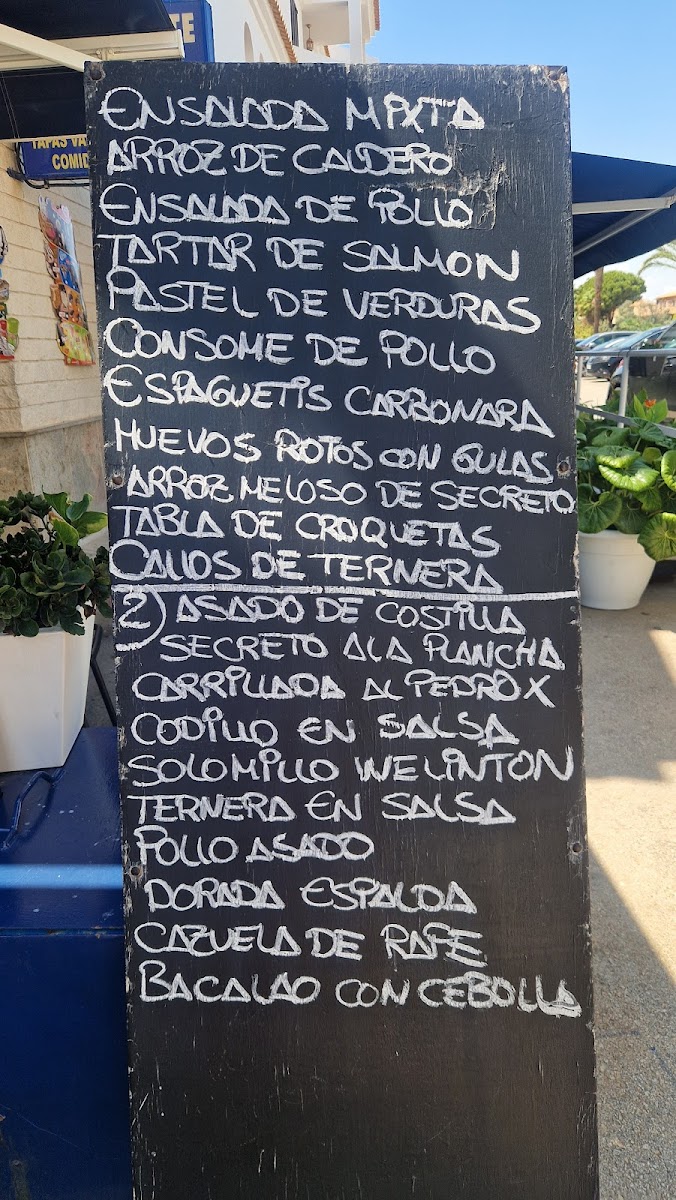 TE
TAPAS VA
COMID
ENSALADA MIXTA
ARROZ DE CALDERO
ENSALADA DE POLLO
TARTAR DE SALMON
PASTEL DE VERDURAS
CONSOME DE POLLO
ESPAGUETIS CARBONARA
HUEVOS ROTOS CON GULAS
ARROZ MELOSO DE SECRETO
TABLA DE CROQUETAS
CALLOS DE TERNERA
2) ASADO DE COSTILLA
SECRETO A LA PLANCHA
CARRILLADA AL PEDRO X
CODILLO EN SALSA
SOLOMILLO WELINTON
TERNERA EN SALSA
POLLO ASADO
DORADA ESPALDA
CAZUELA DE RAPE
BACALAO CON CEBOLLA